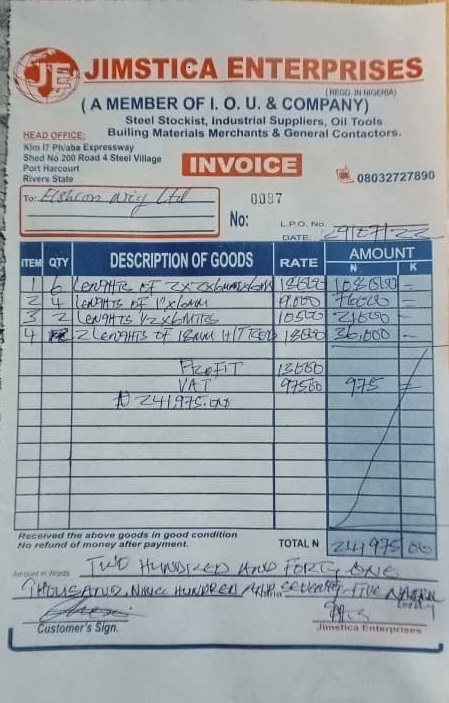 JE
JIMSTICA ENTERPRISES
(REGD. IN NIGERIA)
( A MEMBER OF I. O. U. & COMPANY)
Steel Stockist, Industrial Suppliers, Oil Tools
Builing Materials Merchants & General Contactors.
HEAD OFFICE:
Klm I7 Ph/aba Expressway
Shed No 200 Road 4 Steel Village
Port Harcourt
Rivers State
INVOICE
08032727890
To: Nig Ltd
0087
No:
L.P.O. No.
DATE: 29/07/22
ITEM QTY DESCRIPTION OF GOODS RATE AMOUNT
N K
1 6 LENGHTS OF 2x2x6mmx6m 18000 108000 =
2 4 LENGHTS OF 1"x6mm 19000 76000 =
3 2 LENGHTS 1/2x6MTRS 10500 21000 =
4 2 LENGHTS OF 18MM H/TRED 18000 36,000 =
PROFIT 13000
VAT 97500 975 =
₦ 241,975.00
Received the above goods in good condition
No refund of money after payment.
TOTAL N 241975 00
Amount in Words TWO HUNDRED AND FORTY ONE
THOUSAND, NINE HUNDRED AND SEVENTY-FIVE NAIRA only
Customer's Sign.
Jimstica Enterprises